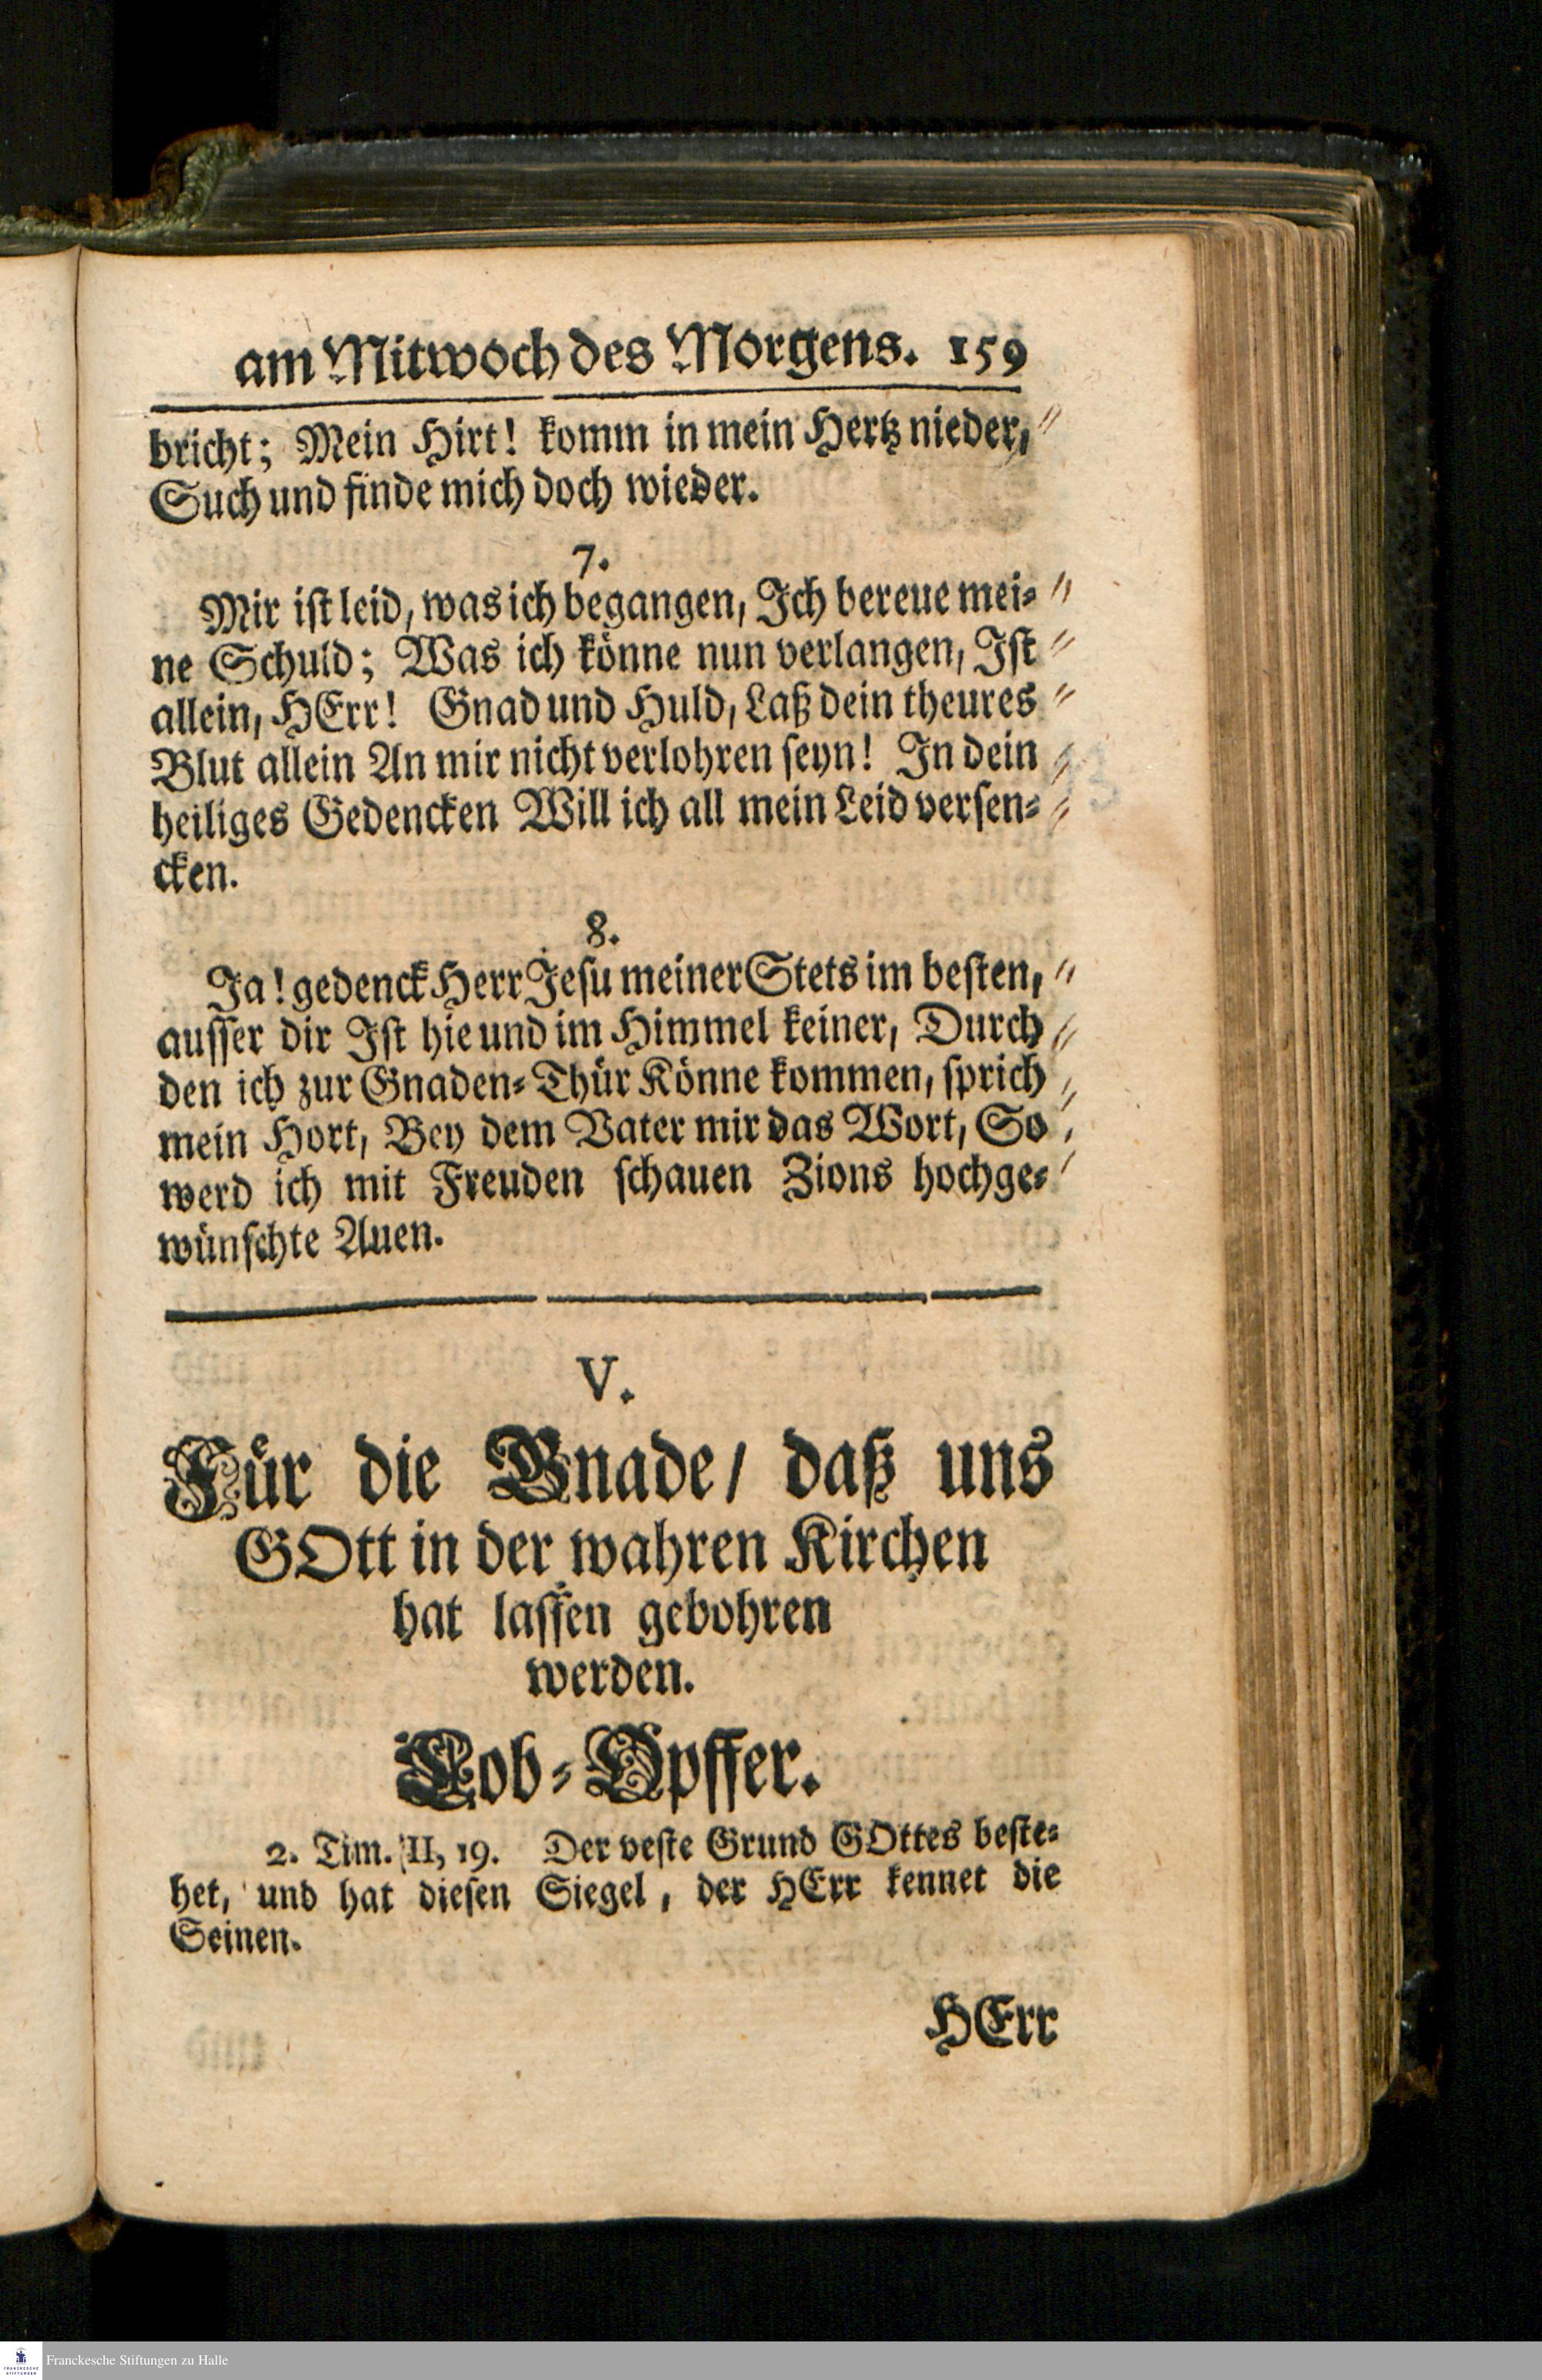 am Mitwoch des Morgens. 159
bricht; Mein Hirt! komm in mein Hertz nieder, "
Such und finde mich doch wieder.
7.
Mir ist leid, was ich begangen, Ich bereue mei- "
ne Schuld; Was ich könne nun verlangen, Ist "
allein, HErr! Gnad und Huld, Laß dein theures "
Blut allein An mir nicht verlohren seyn! In dein "
heiliges Gedencken Will ich all mein Leid versen- "
cken.
8.
Ja! gedenck Herr Jesu meiner Stets im besten, "
ausser dir Ist hie und im Himmel keiner, Durch "
den ich zur Gnaden-Thür Könne kommen, sprich "
mein Hort, Bey dem Vater mir das Wort, So "
werd ich mit Freuden schauen Zions hochge- "
wünschte Auen.
V.
Für die Gnade/ daß uns
GOtt in der wahren Kirchen
hat lassen gebohren
werden.
Lob-Opffer.
2. Tim. II, 19. Der veste Grund GOttes beste-
het, und hat diesen Siegel, der HErr kennet die
Seinen.
HErr
FRANCKESCHE STIFTUNGEN
Franckesche Stiftungen zu Halle